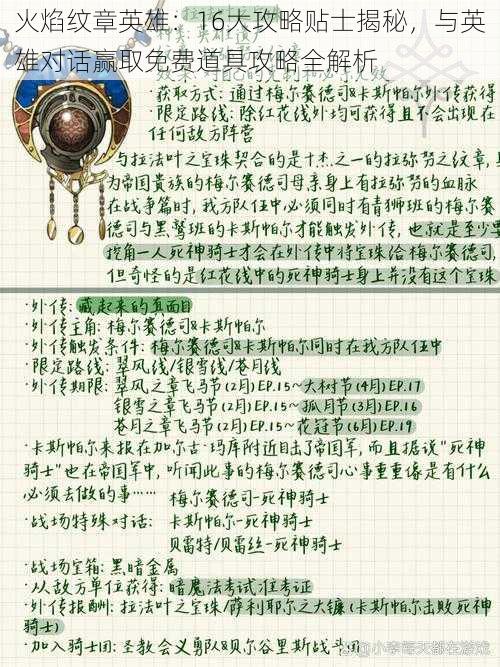 火焰纹章英雄：16大攻略贴士揭秘，与英
雄对话赢取免费道具攻略全解析
·获取方式：通过梅尔赛德司&卡斯帕尔外传获得
·限定路线：除红花线外均可获得且不会出现在
任何敌方阵营
与拉法叶之宝珠契合的是十杰之一的拉弥努之纹章，
为帝国贵族的梅尔赛德司母亲身上有拉弥努的血脉
在战争篇时，我方队伍中必须同时有青狮班的梅尔赛
德司与黑鹫班的卡斯帕尔才能触发外传，也就是至少要
挖角一人死神骑士才会在外传中将宝珠给梅尔赛德司，
但奇怪的是红花线中的死神骑士身上并没有这个宝珠
·外传：藏起来的真面目
·外传主角：梅尔赛德司&卡斯帕尔
·外传触发条件：梅尔赛德司&卡斯帕尔同时在我方队伍中
·限定路线：翠风线/银雪线/苍月线
·外传期限：翠风之章飞马节(2月)EP.15~大树节(4月)EP.17
银雪之章飞马节(2月)EP.15~孤月节(3月)EP.16
苍月之章飞马节(2月)EP.15~花冠节(6月)EP.19
·卡斯帕尔来报在加尔古·玛库附近目击了帝国军，而且据说"死神
骑士"也在帝国军中，听闻此事的梅尔赛德司心事重重像是有什么
必须去做的事……
梅尔赛德司-死神骑士
·战场特殊对话：卡斯帕尔-死神骑士
贝雷特/贝雷丝-死神骑士
·战场宝箱：黑暗金属
·从敌方单位获得：暗魔法考试准考证
·外传报酬：拉法叶之宝珠/萨利耶尔之大镰(卡斯帕尔击败死神
骑士)
·加入骑士团：圣教会义勇队&贝尔谷里斯战斗团
@小李每天都在游戏